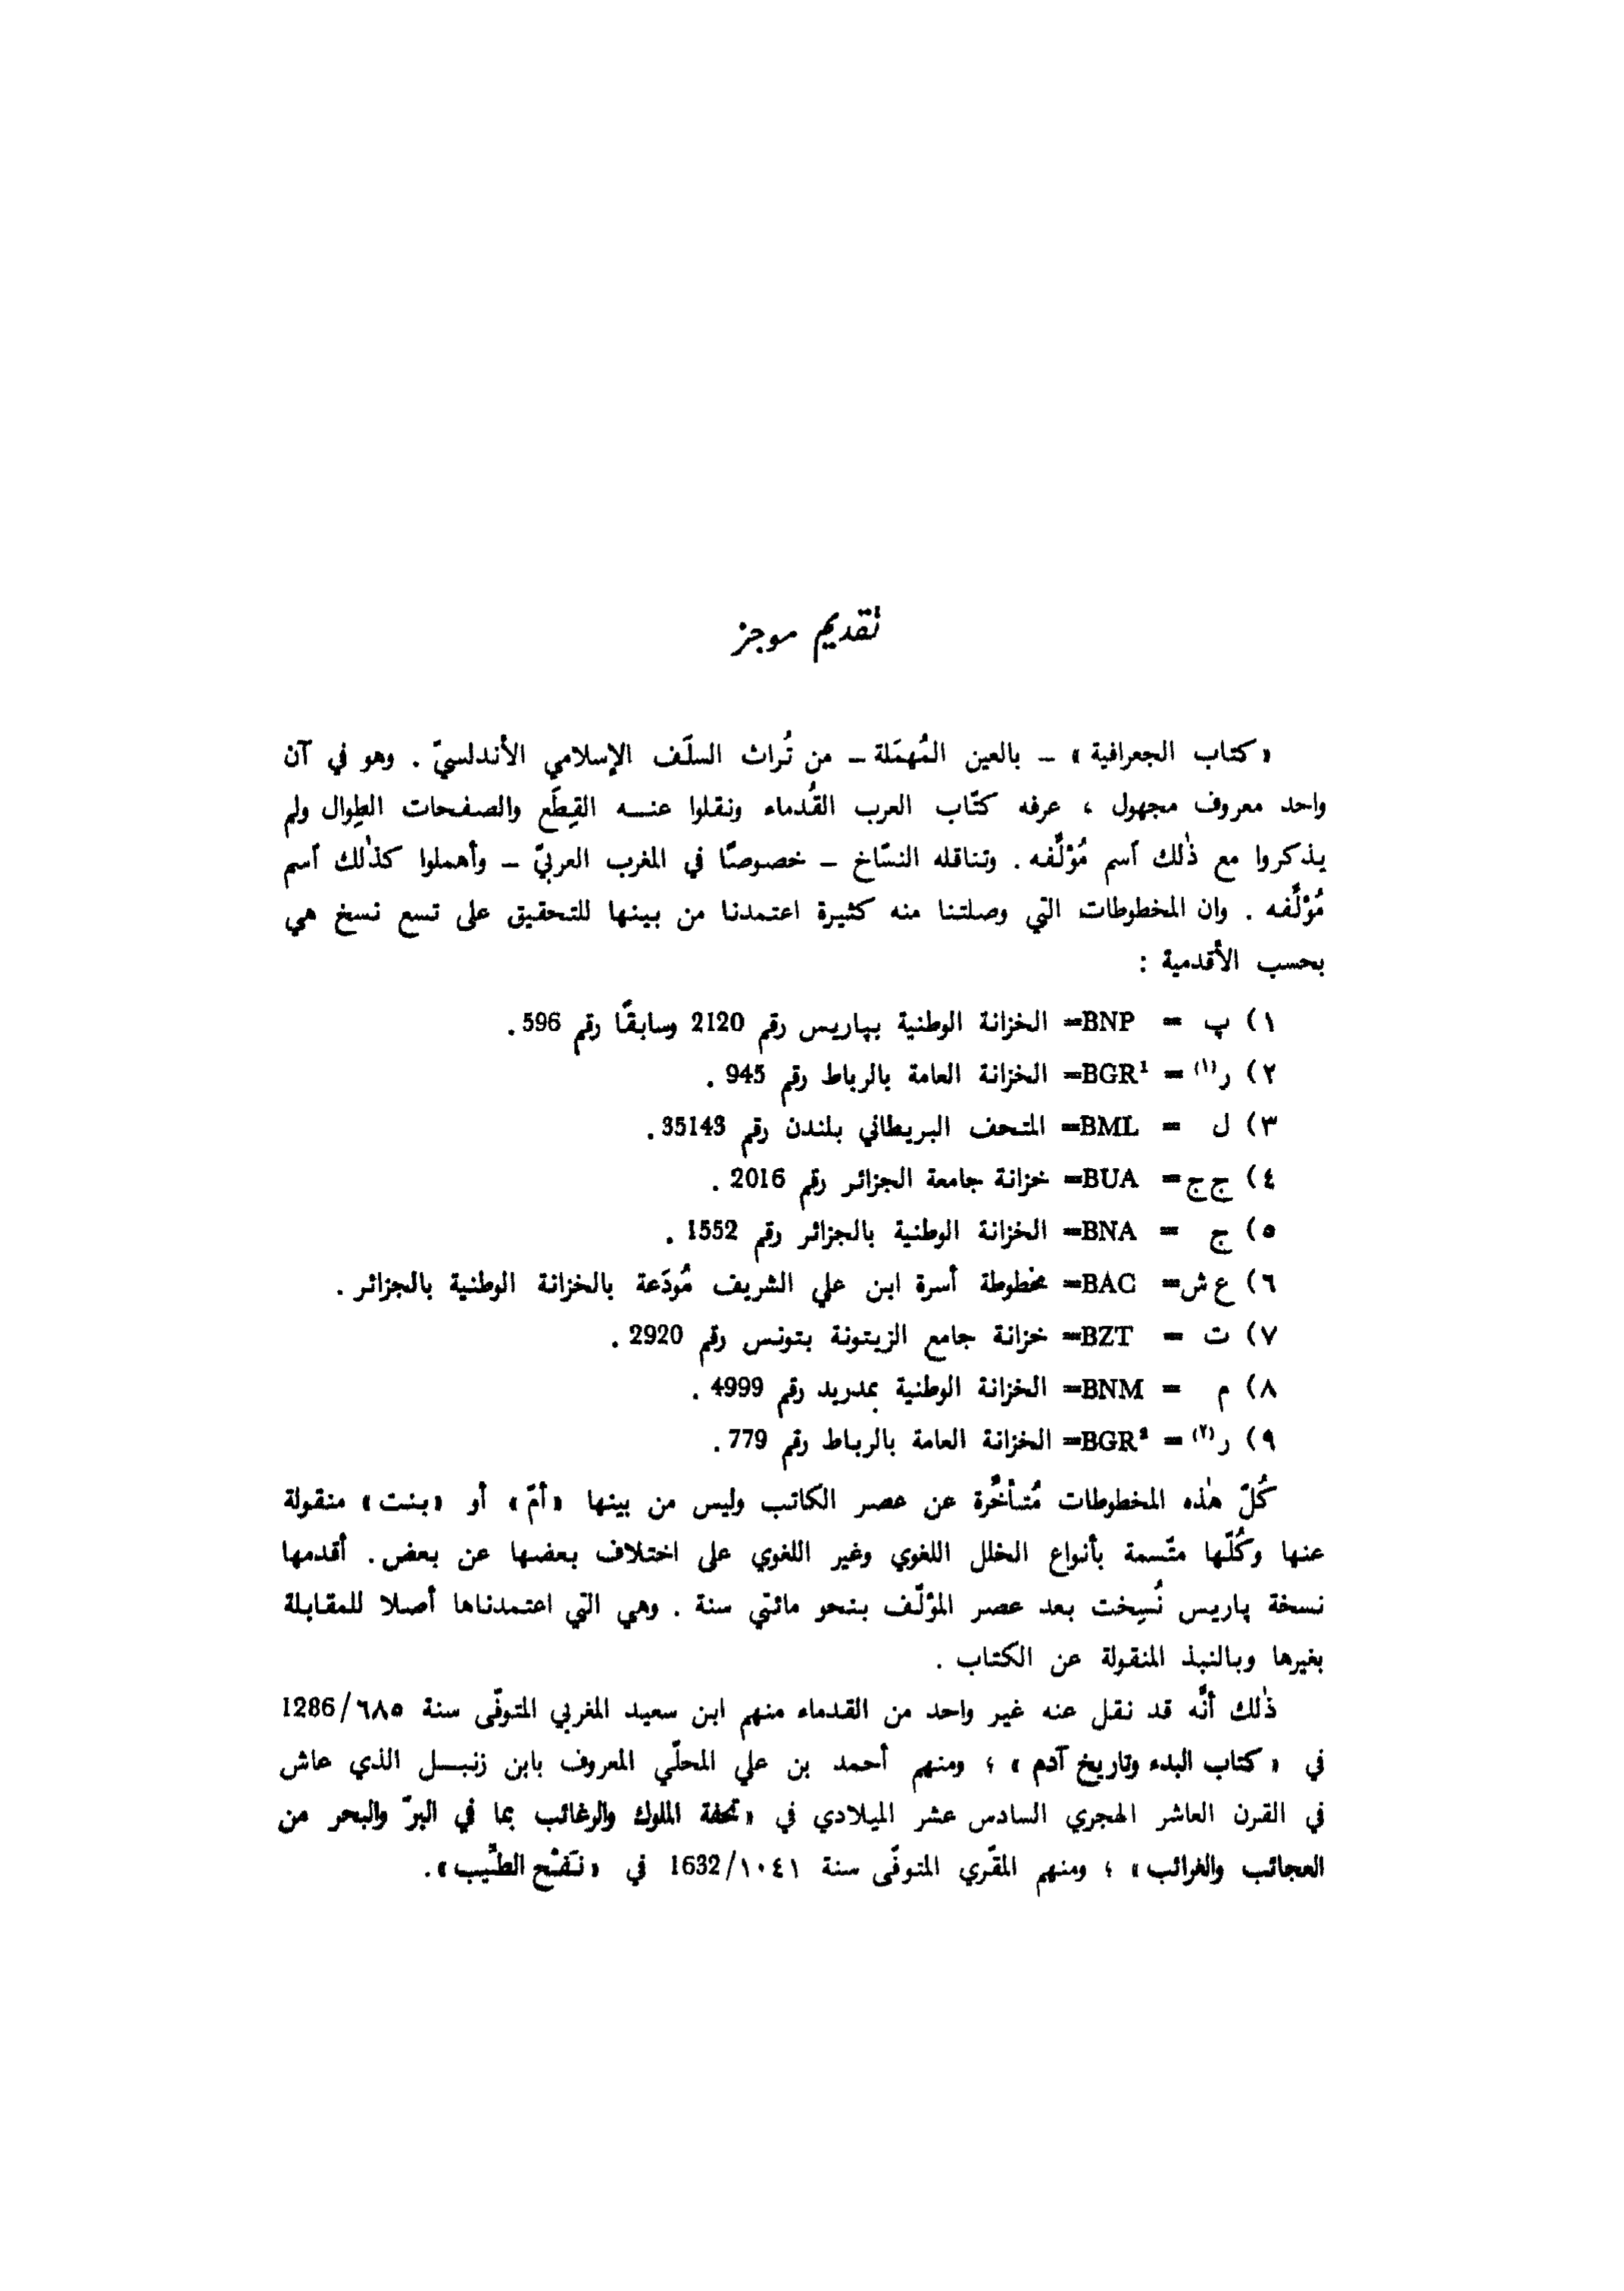 تقديم موجز
«كتاب الجعرافية» – بالعين المُهمَلة – من تُراث السلَف الإسلامي الأندلسيّ . وهو في آن
واحد معروف مجهول ، عرفه كتّاب العرب القُدماء ونقلوا عنه القِطَع والصفحات الطِوال ولم
يذكروا مع ذٰلك ٱسم مُؤلّفه . وتناقله النسّاخ – خصوصًا في المغرب العربيّ – وأهملوا كذٰلك ٱسم
مُؤلّفه . وان المخطوطات التي وصلتنا منه كثيرة اعتمدنا من بينها للتحقيق على تسع نسخ هي
بحسب الأقدمية :
١) پ = BNP= الخزانة الوطنية بپاريس رقم 2120 وسابقًا رقم 596 .
٢) ر(١) = BGR¹= الخزانة العامة بالرباط رقم 945 .
٣) ل = BML= المتحف البريطاني بلندن رقم 35143 .
٤) ج ج = BUA= خزانة جامعة الجزائر رقم 2016 .
٥) ج = BNA= الخزانة الوطنية بالجزائر رقم 1552 .
٦) ع ش = BAC= مخطوطة أسرة ابن علي الشريف مُودَعة بالخزانة الوطنية بالجزائر .
٧) ت = BZT= خزانة جامع الزيتونة بتونس رقم 2920 .
٨) م = BNM= الخزانة الوطنية بمدريد رقم 4999 .
٩) ر(٢) = BGR²= الخزانة العامة بالرباط رقم 779 .
كُلّ هٰذه المخطوطات مُتأخّرة عن عصر الكاتب وليس من بينها «أمّ» أو «بنت» منقولة
عنها وكُلّها متّسمة بأنواع الخلل اللغوي وغير اللغوي على اختلاف بعضها عن بعض . أقدمها
نسخة پاريس نُسِخت بعد عصر المؤلّف بنحو مائتي سنة . وهي التي اعتمدناها أصلا للمقابلة
بغيرها وبالنبذ المنقولة عن الكتاب .
ذٰلك أنّه قد نقل عنه غير واحد من القدماء منهم ابن سعيد المغربي المتوفّى سنة ٦٨٥/1286
في «كتاب البدء وتاريخ آدم» ؛ ومنهم أحمد بن علي المحلّي المعروف بابن زنبل الذي عاش
في القرن العاشر الهجري السادس عشر الميلادي في «تحفة الملوك والرغائب بما في البرّ والبحر من
العجائب والغرائب» ؛ ومنهم المقّري المتوفّى سنة ١٠٤١/1632 في «نَفْح الطّيب» .